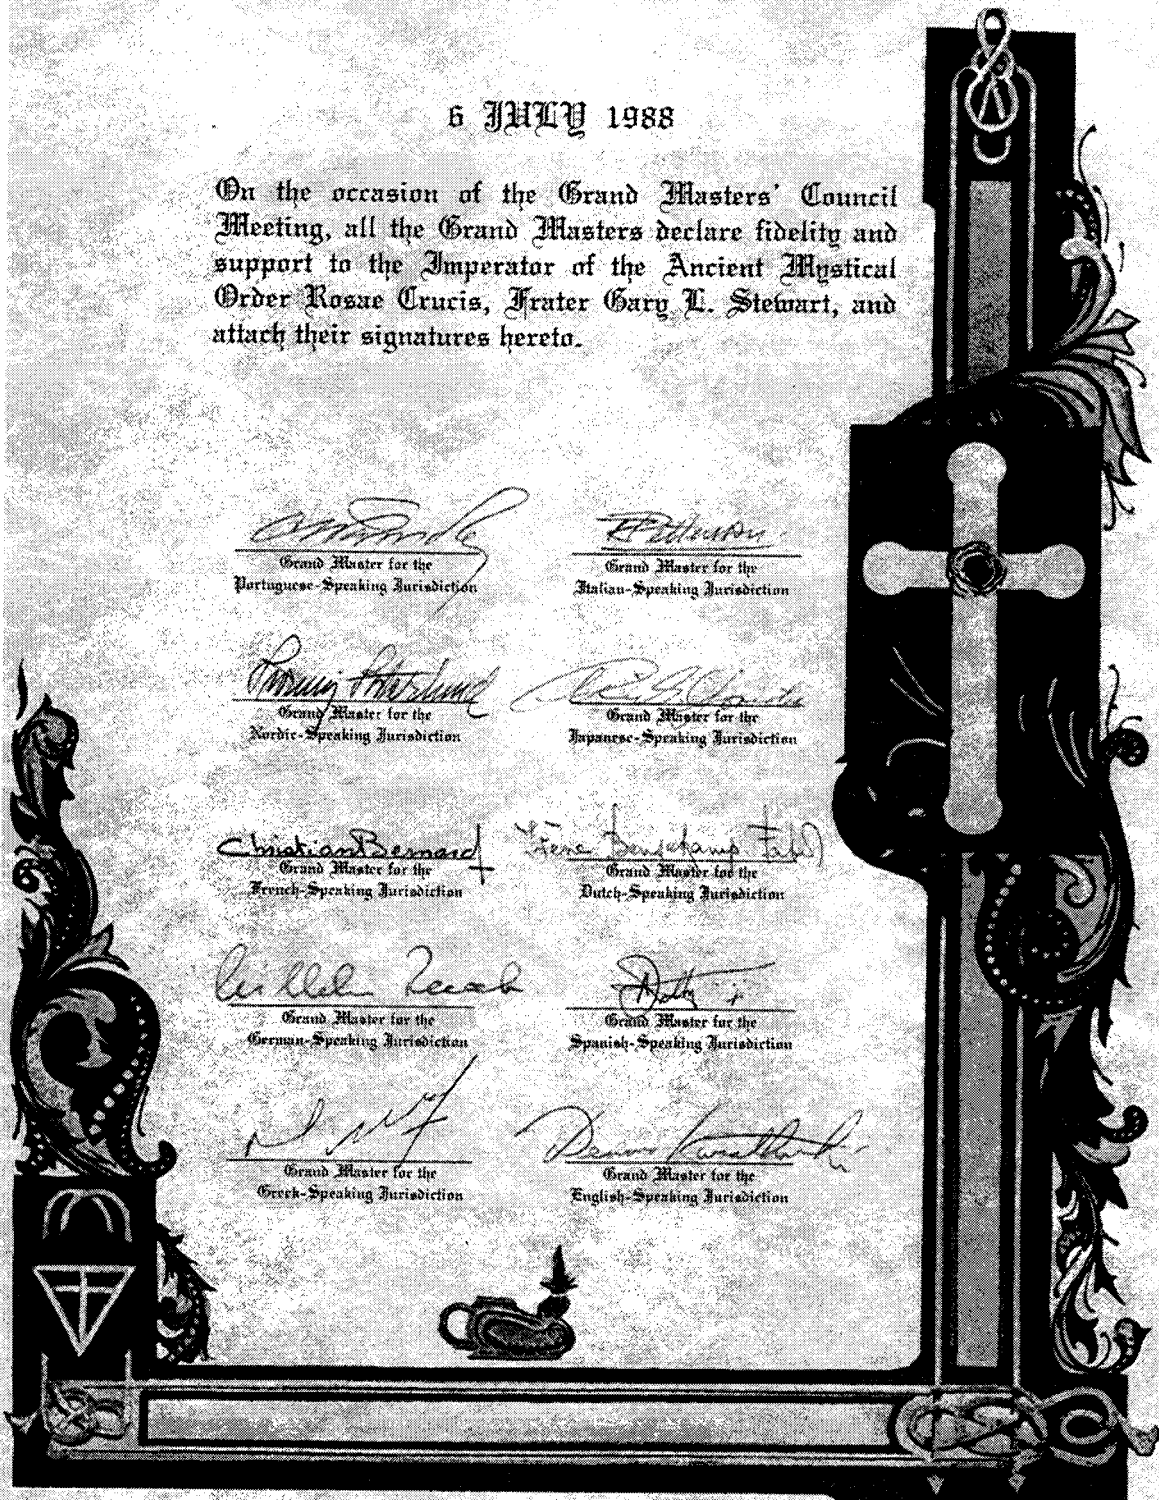 6 JULY 1988
On the occasion of the Grand Masters' Council
Meeting, all the Grand Masters declare fidelity and
support to the Imperator of the Ancient Mystical
Order Rosae Crucis, Frater Gary L. Stewart, and
attach their signatures hereto.
Grand Master for the
Portuguese-Speaking Jurisdiction
Grand Master for the
Italian-Speaking Jurisdiction
Grand Master for the
Nordic-Speaking Jurisdiction
Grand Master for the
Japanese-Speaking Jurisdiction
Christian Bernard
Grand Master for the
French-Speaking Jurisdiction
Irène
Grand Master for the
Dutch-Speaking Jurisdiction
Grand Master for the
German-Speaking Jurisdiction
Grand Master for the
Spanish-Speaking Jurisdiction
Grand Master for the
Greek-Speaking Jurisdiction
Grand Master for the
English-Speaking Jurisdiction